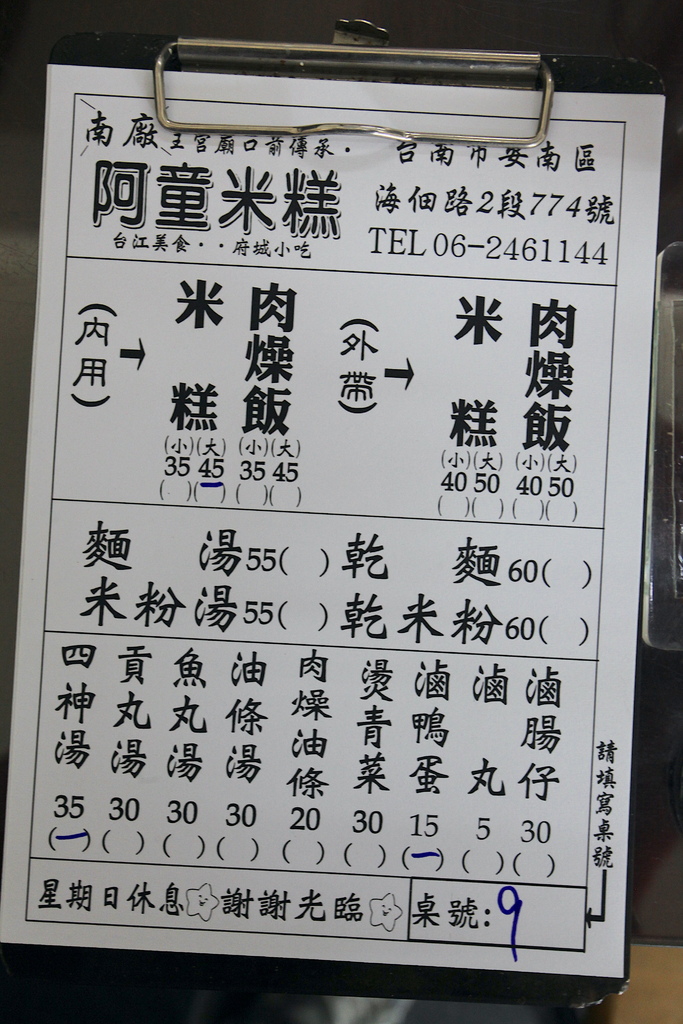 南廠 王宮廟口前傳承・
阿童米糕
台江美食・・府城小吃
台南市安南區
海佃路2段774號
TEL 06-2461144
(內用)→
米糕
(小)(大)
35 45
( )(一)
肉燥飯
(小)(大)
35 45
( )( )
(外帶)→
米糕
(小)(大)
40 50
( )( )
肉燥飯
(小)(大)
40 50
( )( )
麵 湯55( ) 乾 麵60( )
米粉湯55( ) 乾米粉60( )
四神湯 35 (一)
貢丸湯 30 ( )
魚丸湯 30 ( )
油條湯 30 ( )
肉燥油條 20 ( )
燙青菜 30 ( )
滷鴨蛋 15 (一)
滷丸 5 ( )
滷腸仔 30 ( )
請填寫桌號
星期日休息 謝謝光臨
桌號:9